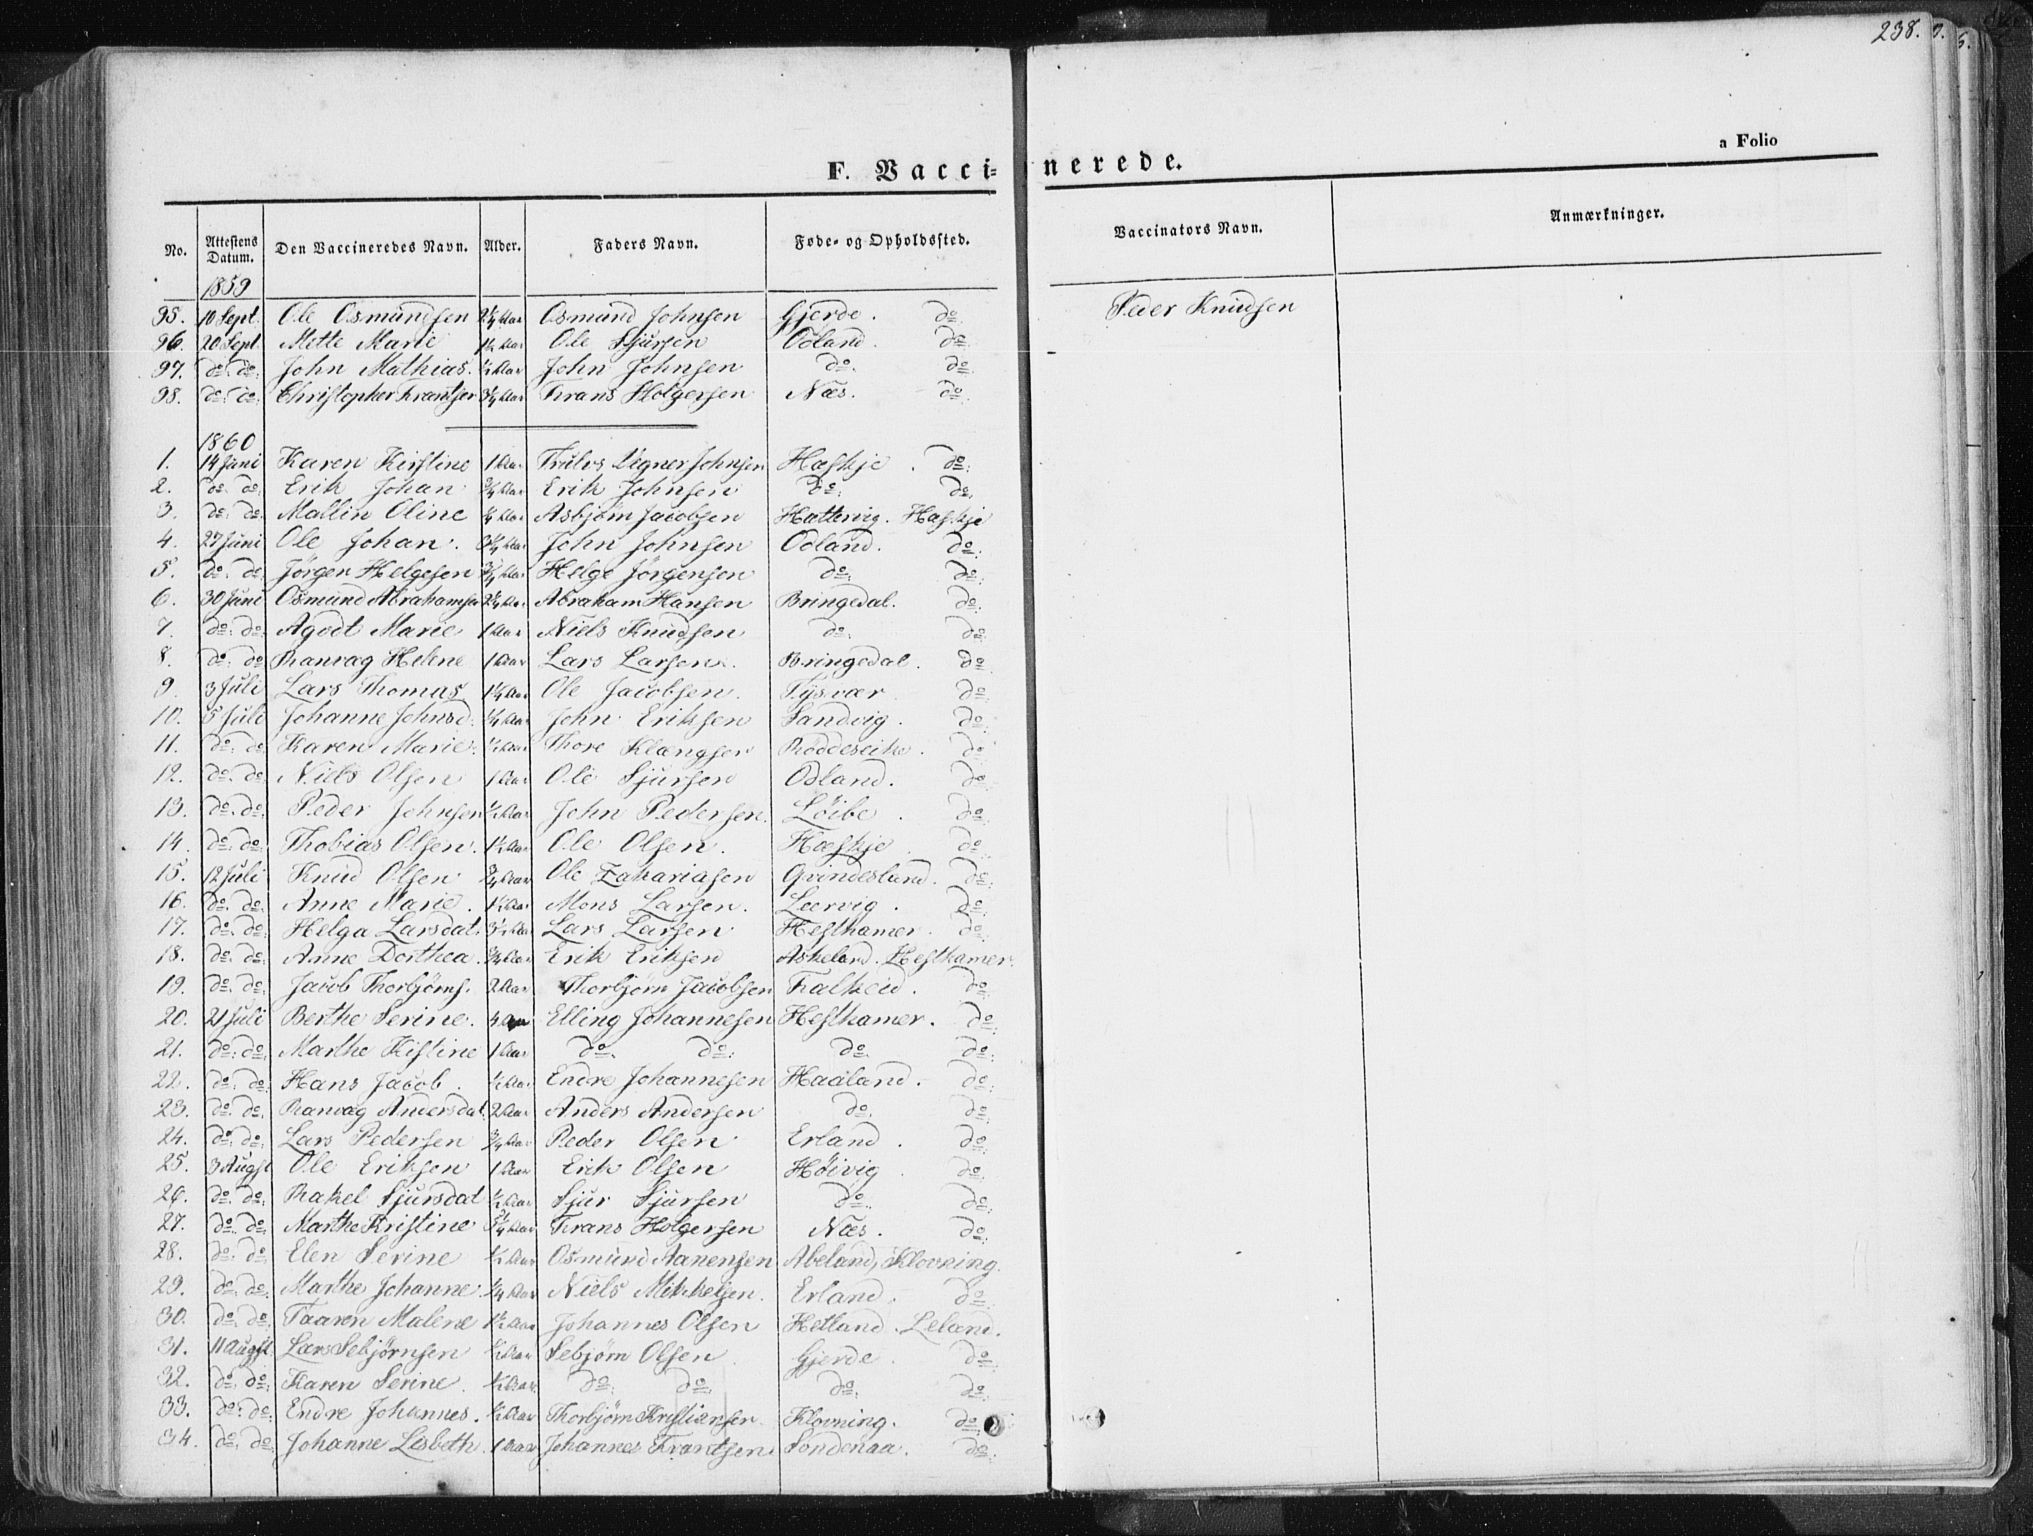 238. 7. 6.
a Folio
F. Vaccinerede.
No. Attestens Datum. Den Vaccineredes Navn. Alder. Faders Navn. Føde- og Opholdssted. Vaccinators Navn. Anmærkninger.
1859
95. 10 Sept. Ole Osmundsen 2¼ Aar Osmund Johnsen Gjerde. do Peder Knudsen
96. 20 Sept Mette Marie Aar Ole Sjursen Odland. do
97. do. do. John Mathias. ½ Aar John Johnsen do. do
98. do. do. Christopher Frantsen Aar Frans Holgersen Næs. do.
1860
1. 14 Juni Karen Kirstine 1 Aar Truls Vigner Johnsen Hæskje. do.
2. do. do. Erik Johan ¾ Aar Erik Johnsen do. do.
3. do. do. Mallin Oline Aar Asbjørn Jacobsen Hattevig. Hæskje
4. 27 Juni Ole Johan. Aar John Johnsen Odland. do.
5. do. do. Jørgen Helgesen ¾ Aar Helge Jørgensen do. do.
6. 30 Juni Osmund Abrahamsen 2¼ Aar Abraham Hansen Bringedal. do.
7. do. do. Agodt Marie 1 Aar Niels Knudsen do. do.
8. do. do. Ranvag Helene 1 Aar Lars Larsen. Bringedal. do.
9. 3 Juli Lars Thomas 1¼ Aar Ole Jacobsen. Tysvær do.
10. 5 Juli Johanne Johnsd. Aar John Eriksen Sandvig. do.
11. do. do Karen Marie. ½ Aar Thore Klængsen Røddeseike. do.
12. do. do. Niels Olsen 1 Aar Ole Sjursen Odland. do.
13. do. do. Peder Johnsen ½ Aar John Pedersen. Løibe. do.
14. do. do. Thobias Olsen. 1½ Aar Ole Olsen. Hæskje do.
15. 12 Juli Knud Olsen ¾ Aar Ole Zakariasen Grindesland. do.
16. do. do. Anne Marie. 1½ Aar Mons Larsen. Leervig. do.
17. do. do. Helga Larsdat. 3½ Aar Lars Larsen Hesthamer. do.
18. do. do. Anne Dorthea. ¾ Aar Erik Eriksen Askeland. Hesthamer.
19. do. do. Jacob Thorbjørns. 2 Aar Thorbjørn Jacobsen Falkeid. do.
20. 21 Juli Berthe Serine. 4 Aar Elling Johannesen Hesthamer. do.
21. do. do. Marthe Kistine 1 Aar do. do. do. do.
22. do. do. Hans Jacob. ½ Aar Endre Johannesen Haaland. do.
23. do. do. Ranvag Andersdat. 2 Aar Anders Andersen do. do.
24. do. do. Lars Pedersen ¾ Aar Peder Olsen Erland. do.
25. 3 Augst Ole Eriksen 1 Aar Erik Olsen Høivig do.
26. do. do. Rakel Sjursdat ½ Aar Sjur Sjursen do. do.
27. do. do. Marthe Kristine Aar Frans Holgersen Næs. do.
28. do. do. Elen Serine ½ Aar Osmund Aanensen Abeland, Klovning.
29. do. do. Marthe Johanne. ¼ Aar Niels Mikkelsen. Erland. do.
30. do. do. Taaren Malene 1½ Aar Johannes Olsen Hetland. Leland.
31. 11 Augst Lars Sebjørnsen ½ Aar Sebjørn Olsen Gjerde. do.
32. do. do. Karen Serine. ½ Aar. do. do. do. do.
33. do. do. Endre Johannes. ½ Aar Thorbjørn Kristiansen. Klovning. do.
34. do. do. Johanne Lisbeth. 1 Aar Johannes Frantsen Søndenaa. do.